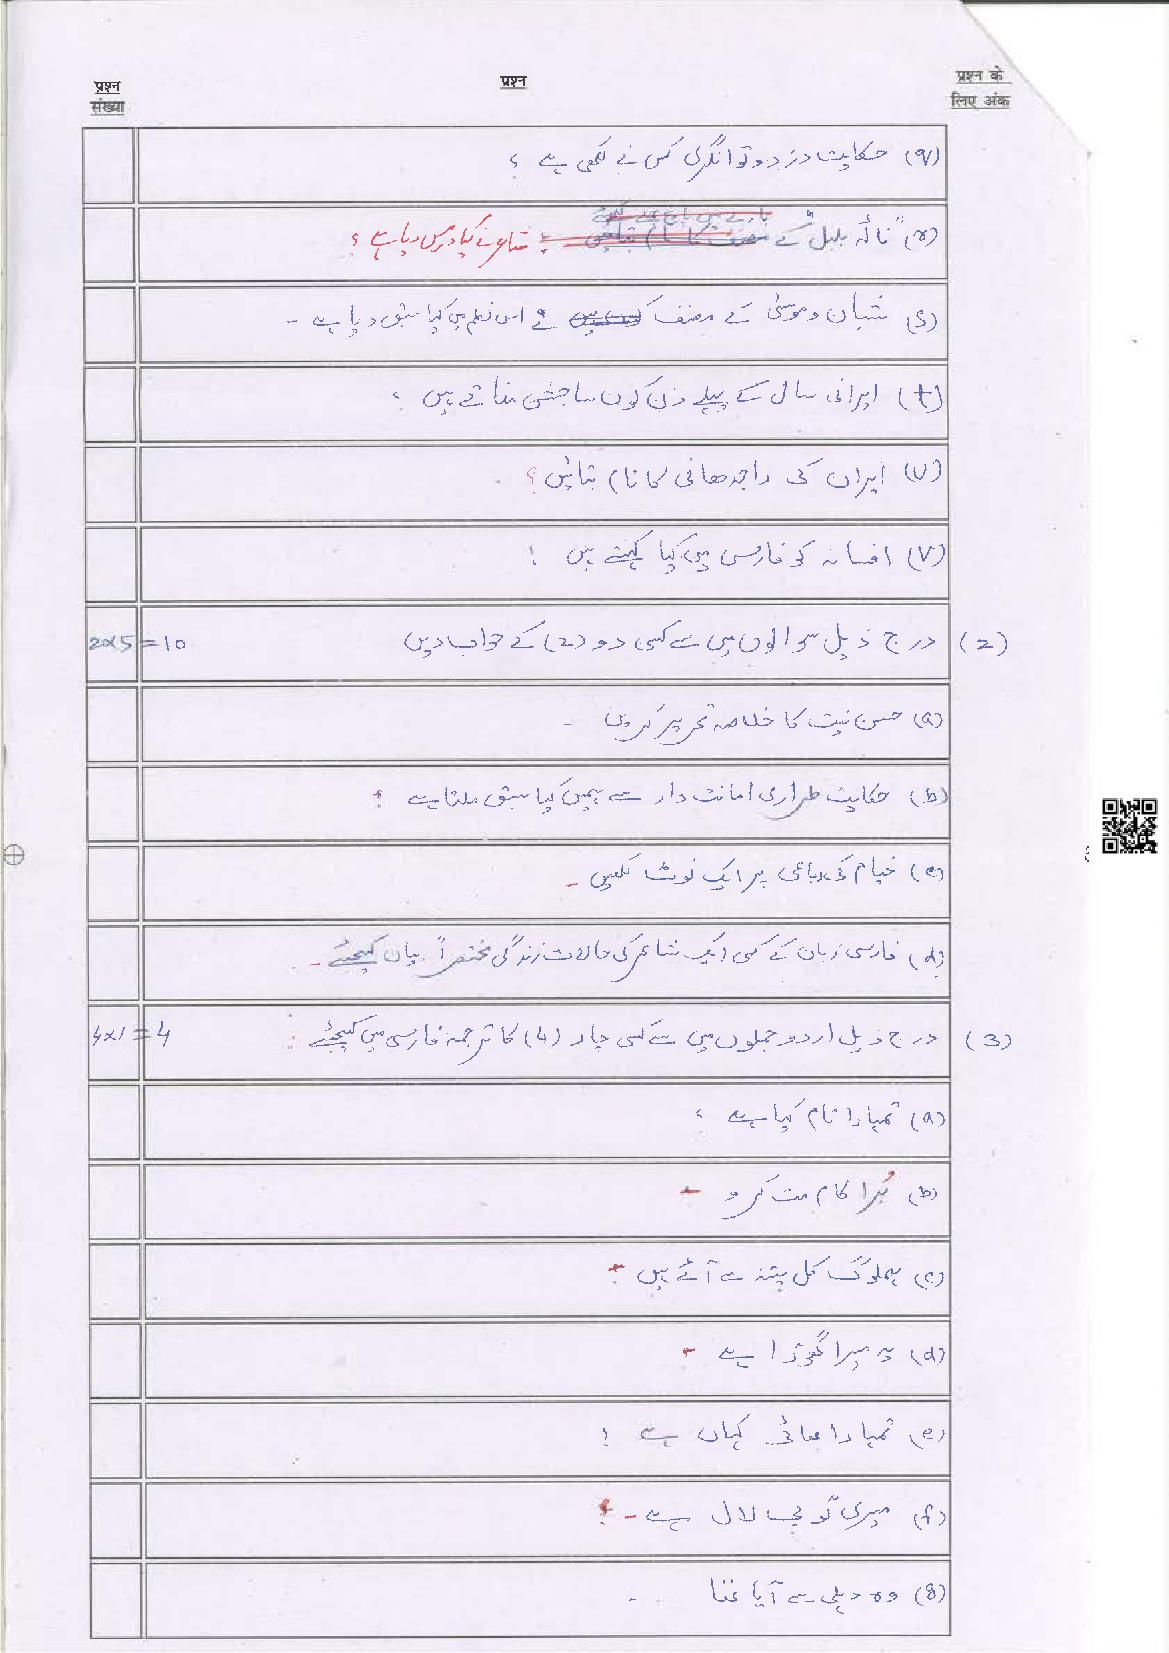 प्रश्न संख्या
प्रश्न
प्रश्न के लिए अंक
(q) حکایت دزد و توانگری کس نے لکھی ہے ؟
(r) "نالہ بلبل" کے شاعر نے کیا درس دیا ہے ؟
(s) شبان و موسیٰ کے مصنف نے اس نظم میں کیا سبق دیا ہے -
(t) ایرانی سال کے پہلے دن کون سا جشن مناتے ہیں ؟
(u) ایران کی راجدھانی کا نام بتائیں ؟
(v) افسانہ کو فارسی میں کیا کہتے ہیں ؟
(2) درج ذیل سوالوں میں سے کسی دو (2) کے جواب دیں 2x5=10
(a) حسن نیت کا خلاصہ تحریر کریں -
(b) حکایت طراری امانت دار سے ہمیں کیا سبق ملتا ہے ؟
(c) خیام کی رباعی پر ایک نوٹ لکھیں -
(d) فارسی زبان کے کسی ایک شاعر کی حالات زندگی مختصراً بیان کیجئے -
(3) درج ذیل اردو جملوں میں سے کسی چار (4) کا ترجمہ فارسی میں کیجئے : 4x1=4
(a) تمہارا نام کیا ہے ؟
(b) بُرا کام مت کرو -
(c) ہملوگ کل پٹنہ سے آئے ہیں -
(d) یہ میرا گھوڑا ہے -
(e) تمہارا بھائی کہاں ہے ؟
(f) میری ٹوپی لال ہے -
(g) وہ دہلی سے آیا تھا -